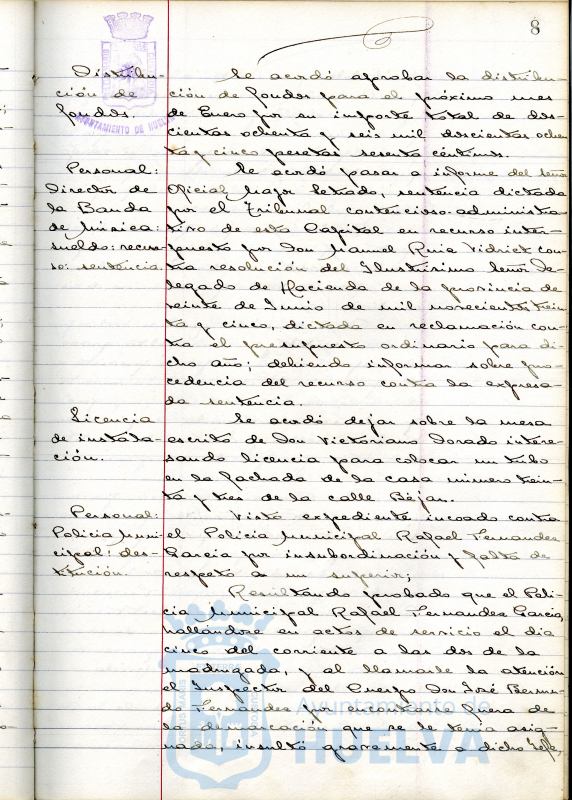 8
AYUNTAMIENTO DE HUELVA
Distribu-
ción de
fondos.
Se acordó aprobar la distribu-
ción de fondos para el próximo mes
de Enero por su importe total de dos-
cientas ochenta y seis mil doscientas ochen-
ta y cinco pesetas sesenta céntimos.
Personal:
Director de
la Banda
de Música:
sueldo: recur-
so: sentencia.
Se acordó pasar a informe del señor
Oficial Mayor Letrado, sentencia dictada
por el Tribunal contencioso-administra-
tivo de esta Capital en recurso inter-
puesto por Don Manuel Ruiz Vidriet con-
tra resolución del Ilustrísimo Señor De-
legado de Hacienda de la provincia de
veinte de Junio de mil novecientos trein-
ta y cinco, dictada en reclamación con-
tra el presupuesto ordinario para di-
cho año; debiendo informar sobre pro-
cedencia del recurso contra la expresa-
da sentencia.
Licencia
de instala-
ción.
Se acordó dejar sobre la mesa
escrito de Don Victoriano Dorado intere-
sando licencia para colocar un tubo
en la fachada de la casa número trein-
ta y tres de la calle Béjar.
Personal:
Policía Muni-
cipal: des-
titución.
Visto expediente incoado contra
el Policía Municipal Rafael Fernandez
García por insubordinación y falta de
respeto a un superior;
Resultando probado que el Poli-
cía Municipal Rafael Fernandez García,
hallándose en actos de servicio el día
cinco del corriente a las dos de la
madrugada, y al llamarle la atención
el Inspector del Cuerpo Don José Bermu-
do Fernandez por encontrarse fuera de
la demarcación que se le tenía asig-
nada, insultó gravemente a dicho Jefe,
Ayuntamiento de
HUELVA